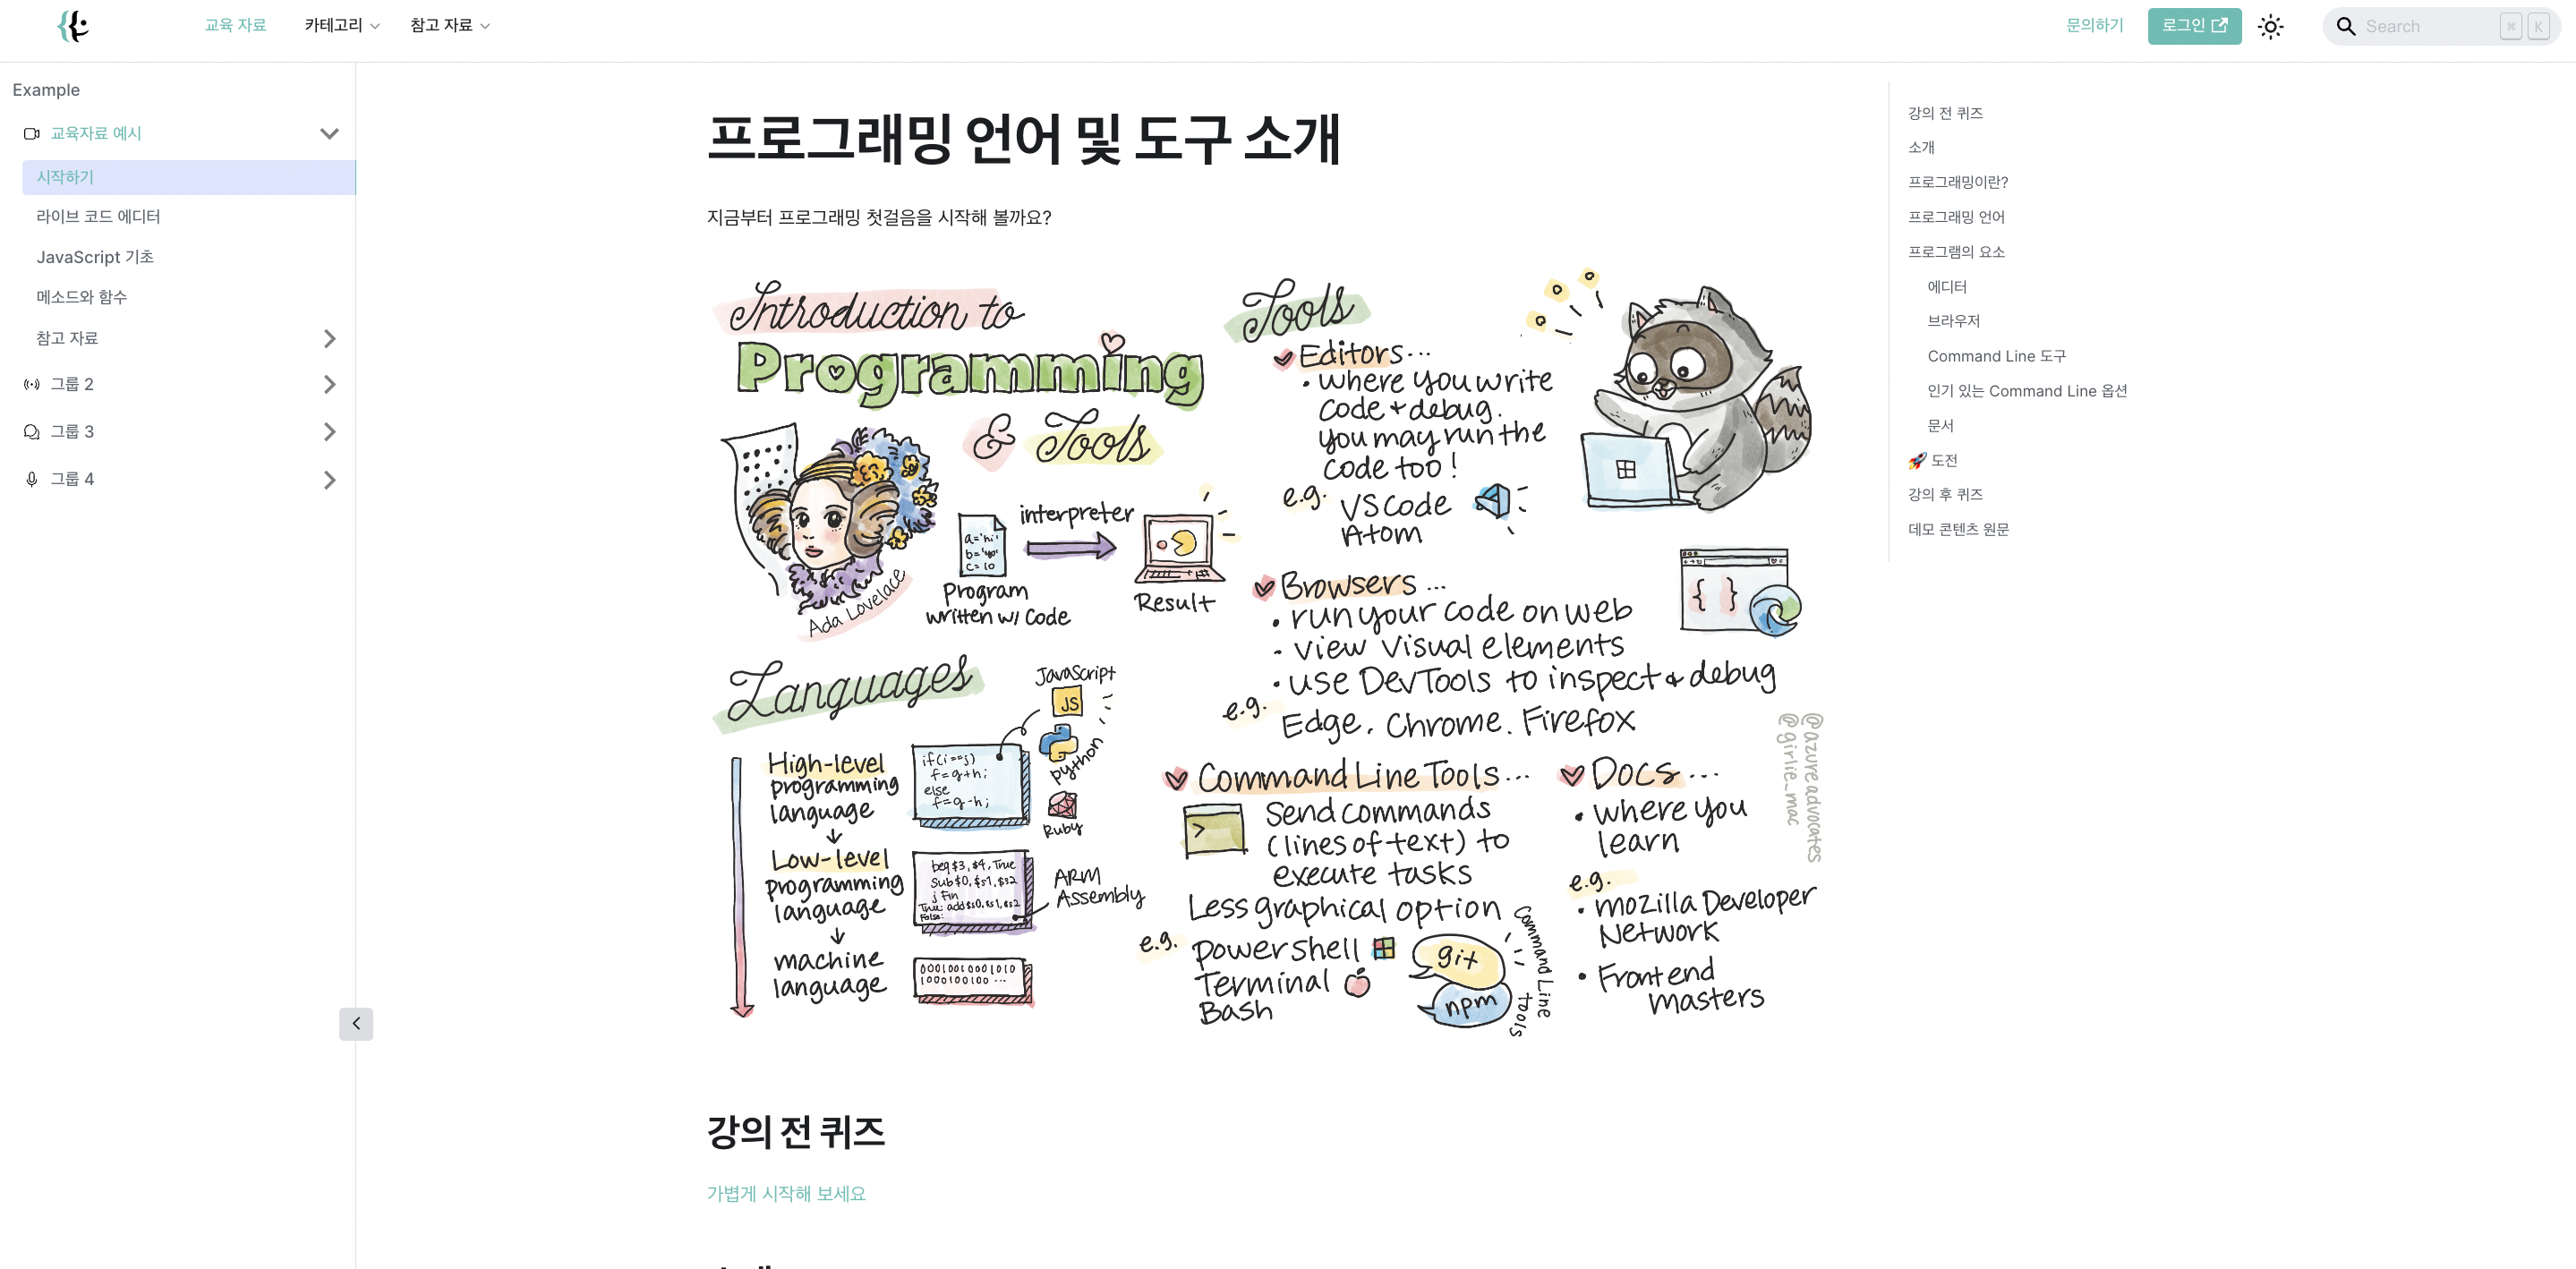 교육 자료
카테고리
참고 자료
문의하기
로그인
Search
⌘ K
Example
교육자료 예시
시작하기
라이브 코드 에디터
JavaScript 기초
메소드와 함수
참고 자료
그룹 2
그룹 3
그룹 4
프로그래밍 언어 및 도구 소개
지금부터 프로그래밍 첫걸음을 시작해 볼까요?
Introduction to
Programming
& Tools
Ada Lovelace
a='hi'
b='yo'
c=10
interpreter
Program
written w/ Code
Result
Languages
High-level
programming
language
Low-level
programming
language
machine
language
if(i==j)
f=g+h;
else
f=g-h;
JavaScript
JS
python
Ruby
beq $3, $4, True
Sub $0, $s1, $s2
j Fin
True: add $s0, $s1, $s2
False:
ARM
Assembly
00010010001010
1000100100 ...
Tools
Editors...
• where you write
code + debug.
you may run the
code too!
e.g. VS Code
Atom
Browsers ...
• run your code on web
- view visual elements
• use DevTools to inspect & debug
e.g. Edge. Chrome. Firefox
Command Line Tools...
>
Send commands
(lines of text) to
execute tasks
Less graphical option
e.g. powershell
Terminal
Bash
git
npm
Command Line
Tools
Docs...
• where you
learn
e.g.
• mozilla Developer
Network
• Frontend
masters
{ }
@azureadvocates
@girlie_mac
강의 전 퀴즈
가볍게 시작해 보세요
강의 전 퀴즈
소개
프로그래밍이란?
프로그래밍 언어
프로그램의 요소
에디터
브라우저
Command Line 도구
인기 있는 Command Line 옵션
문서
🚀 도전
강의 후 퀴즈
데모 콘텐츠 원문